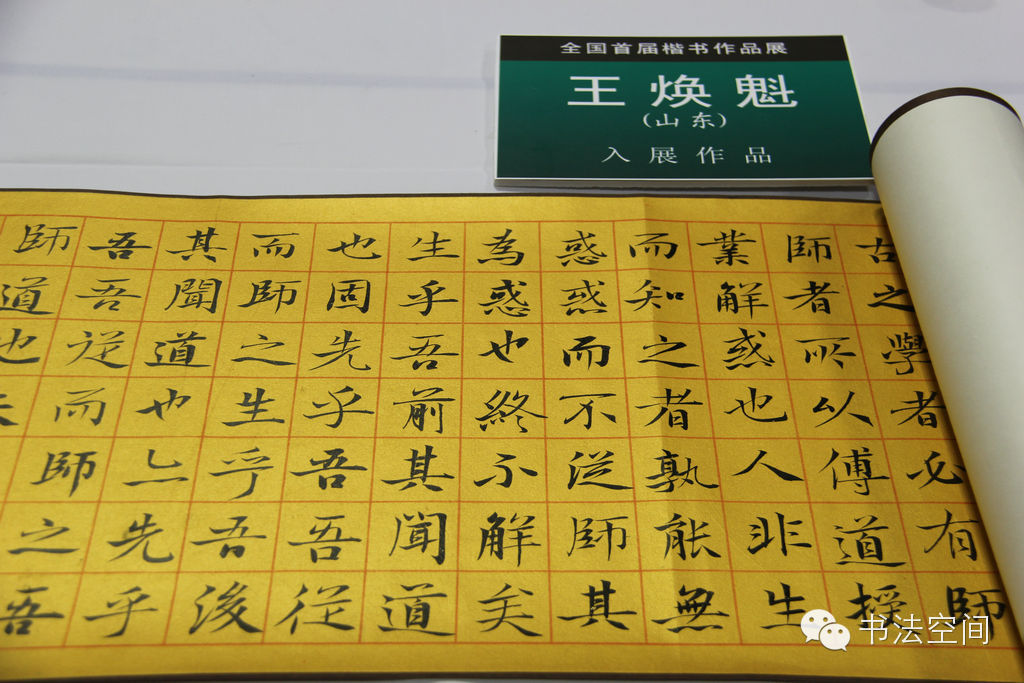 全国首届楷书作品展
王焕魁
（山东）
入展作品
古之學者必有師
師者所以傅道授
業解惑也人非生
而知之者孰能無
惑惑而不從師其
為惑也終不解矣
生乎吾前其聞道
也固先乎吾吾從
而師之生乎吾後
其聞道也亦先乎
吾吾從而師之吾
師道也夫
书法空间